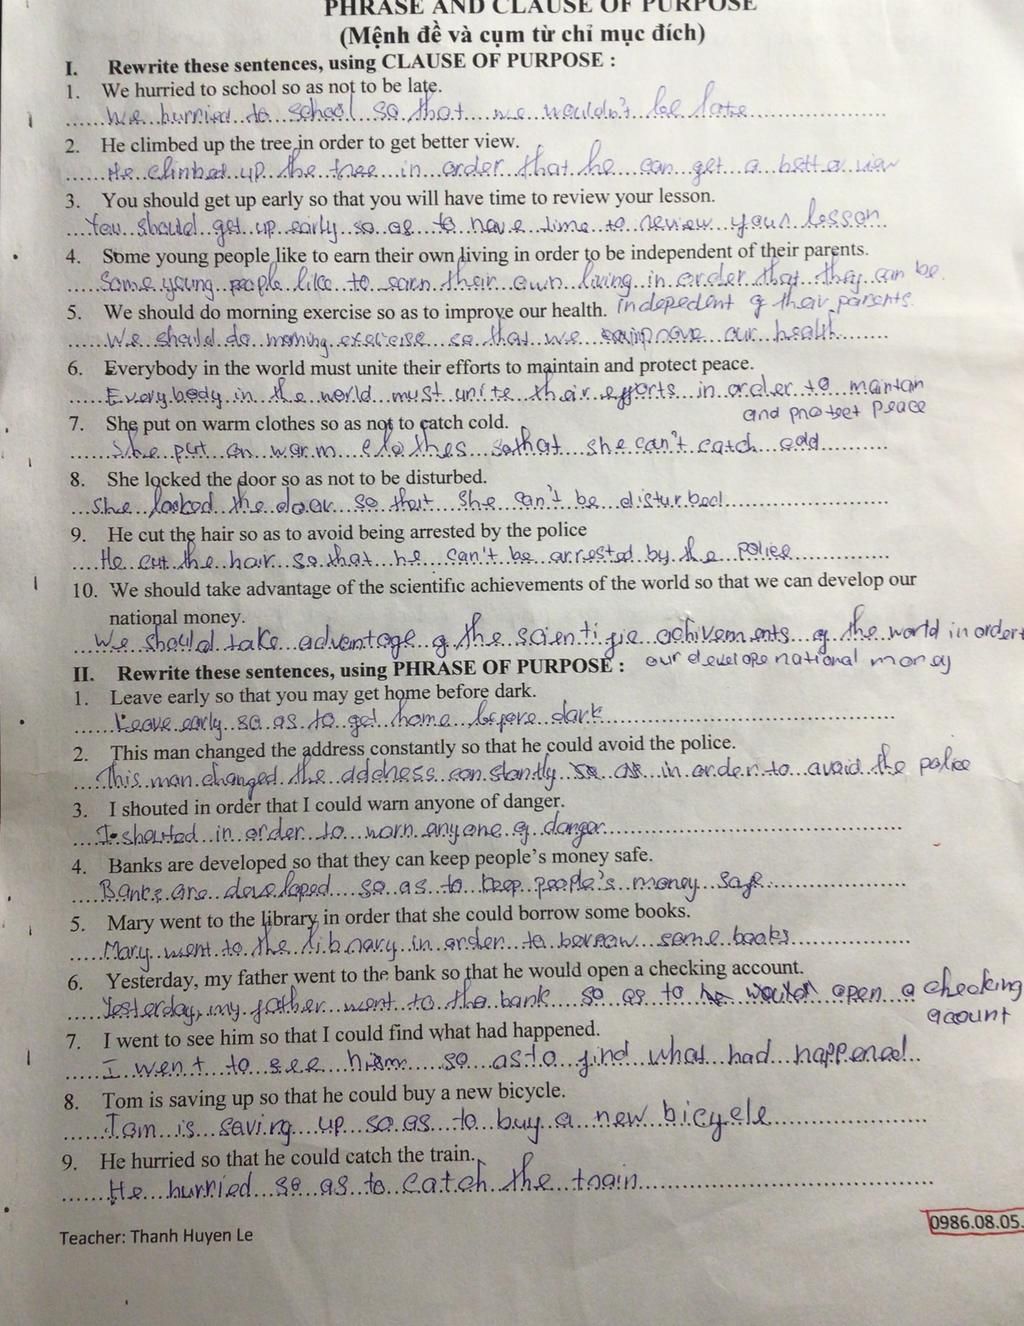 PHRASE AND CLAUSE OF PURPOSE
(Mệnh đề và cụm từ chỉ mục đích)
I. Rewrite these sentences, using CLAUSE OF PURPOSE :
1. We hurried to school so as not to be late.
We hurried to school so that we wouldn't be late
2. He climbed up the tree in order to get better view.
He climbed up the tree in order that he can get a better view
3. You should get up early so that you will have time to review your lesson.
You should get up early so as to have time to review your lesson
4. Some young people like to earn their own living in order to be independent of their parents.
Some young people like to earn their own living in order that they can be
5. We should do morning exercise so as to improve our health. indepedent of their parents
We should do morning exercise so that we improve our health
6. Everybody in the world must unite their efforts to maintain and protect peace.
Everybody in the world must unite their efforts in order to maintan
and protect peace
7. She put on warm clothes so as not to catch cold.
She put on warm clothes so that she can't catch cold
8. She locked the door so as not to be disturbed.
She locked the door so that she can't be disturbed
9. He cut the hair so as to avoid being arrested by the police
He cut the hair so that he can't be arrested by the police
10. We should take advantage of the scientific achievements of the world so that we can develop our
national money.
We should take advantage of the scientific achivements of the world in order t
II. Rewrite these sentences, using PHRASE OF PURPOSE : our develope national money
1. Leave early so that you may get home before dark.
Leave early so as to get home before dark
2. This man changed the address constantly so that he could avoid the police.
This man changed the address constantly so as in order to avoid the police
3. I shouted in order that I could warn anyone of danger.
I shouted in order to warn anyone of danger
4. Banks are developed so that they can keep people's money safe.
Banks are developed so as to keep people's money safe
5. Mary went to the library in order that she could borrow some books.
Mary went to the library in order to borrow some books
6. Yesterday, my father went to the bank so that he would open a checking account.
Yesterday, my father went to the bank so as to he would open a checking
acount
7. I went to see him so that I could find what had happened.
I went to see him so as to find what had happened
8. Tom is saving up so that he could buy a new bicycle.
Tom is saving up so as to buy a new bicycle
9. He hurried so that he could catch the train.
He hurried so as to catch the train
0986.08.05.
Teacher: Thanh Huyen Le